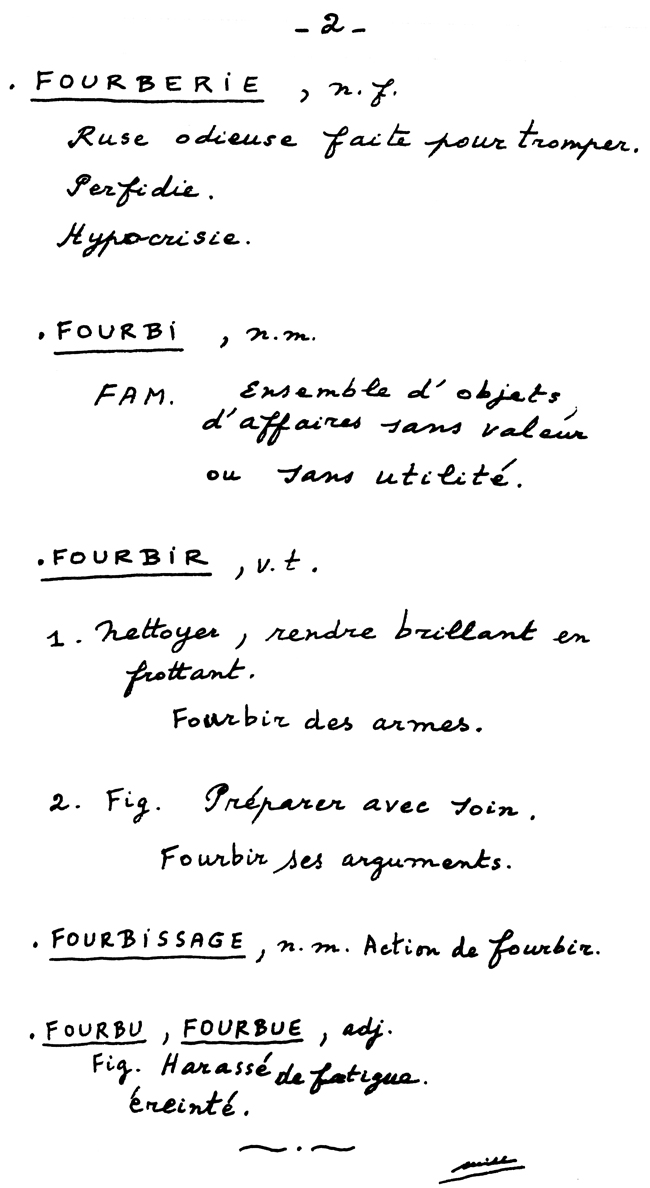 - 2 -
. FOURBERIE , n. f.
Ruse odieuse faite pour tromper.
Perfidie.
Hypocrisie.
. FOURBI , n.m.
FAM. Ensemble d'objets,
d'affaires sans valeur
ou sans utilité.
. FOURBIR , v.t.
1. Nettoyer, rendre brillant en
frottant.
Fourbir des armes.
2. Fig. Préparer avec soin.
Fourbir ses arguments.
. FOURBISSAGE , n.m. Action de fourbir.
. FOURBU , FOURBUE , adj.
Fig. Harassé de fatigue.
éreinté.